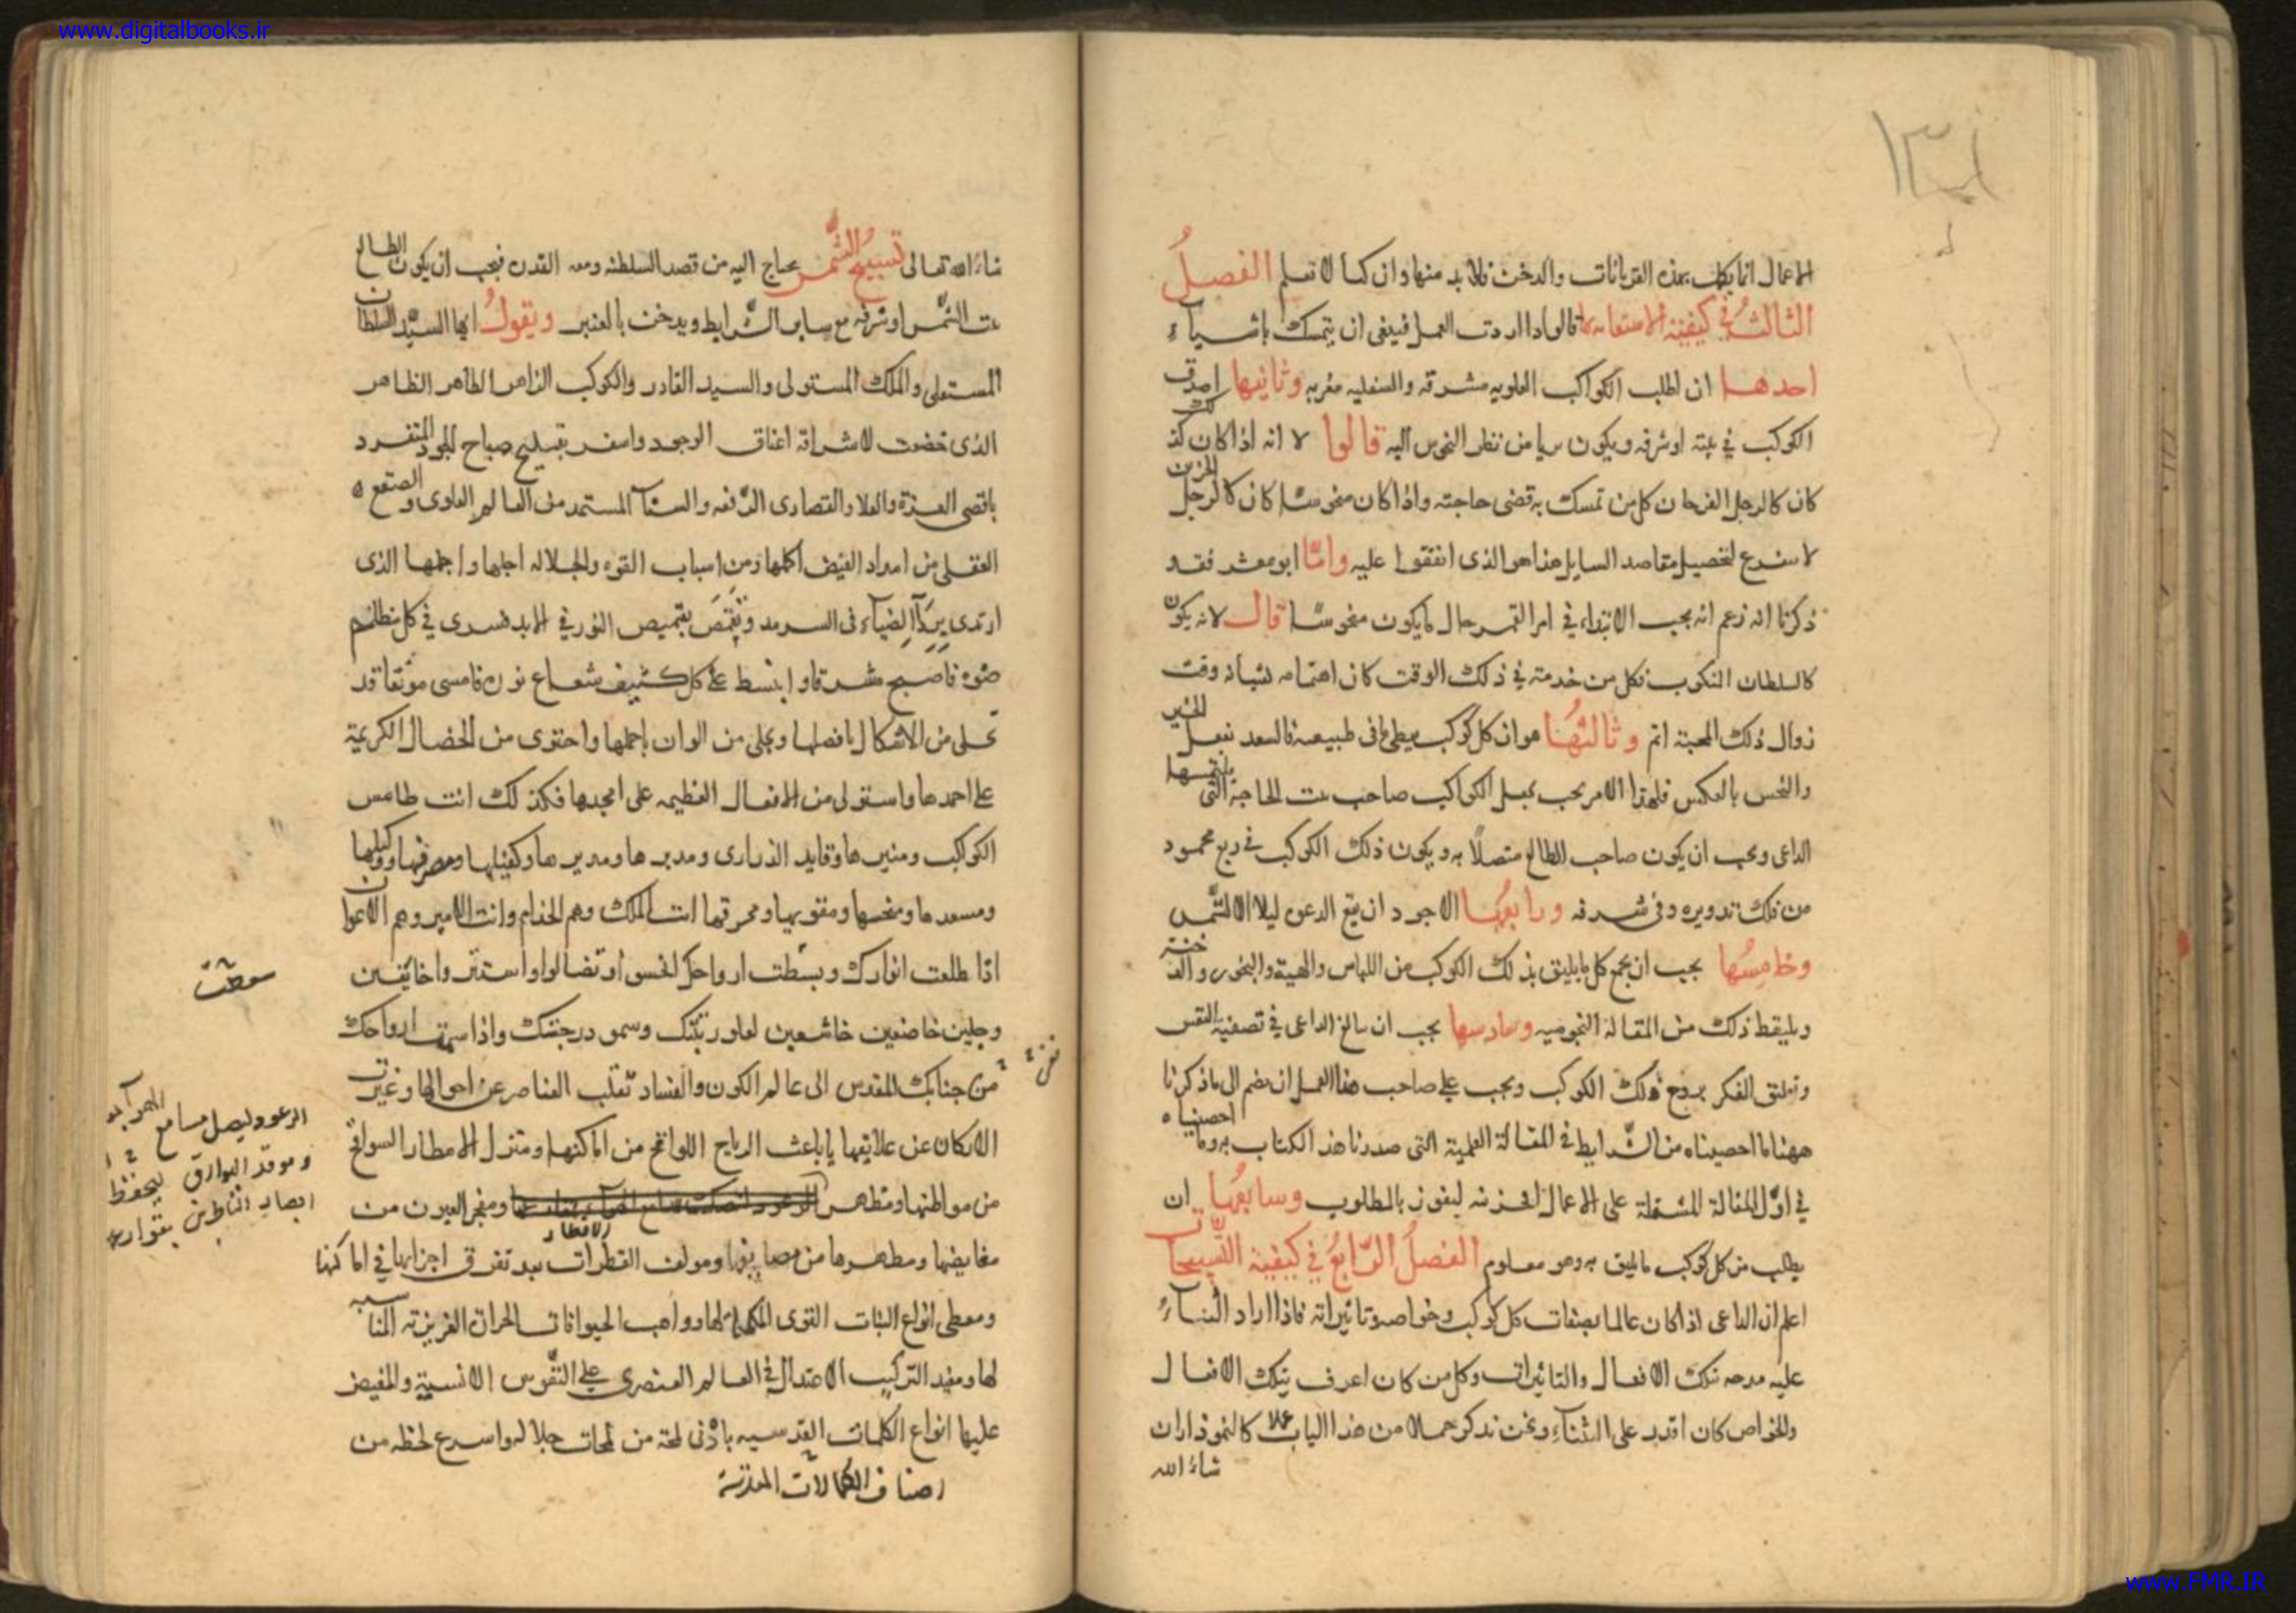 www.digitalbooks.ir
١٣١
الاعمال انما يكمل بهذه القربانات والدخن فلا بد منها وان كنا لا نعلم الفصلُ
الثالثُ في كيفية الاستعانة بها قالوا اذا اردت العمل فينبغي ان يتمسك باشياءَ
احدها ان اطلب الكواكب العلويه مشرقه والسفليه مغربه وثانيها
الكوكب في بيته او شرفه ويكون بريا من نظر النحوس اليه قالوا لانه اذا كان كذلك
كان كالرجل الفرحان كل من تمسك به قضى حاجته واذا كان منحوسًا كان كالرجل الحزين
لا يسرع لتحصيل مقاصد السايل هذا هو الذى اتفقوا عليه وامّا ابو معشر فقد
ذكرنا انه زعم انه يجب الابتداء في امر القمر حال ما يكون منحوسًا قال لانه يكون
كالسلطان المنكوب فكل من خدمه في ذلك الوقت كان اهتمامه وقت
زوال ذلك المحبة اتم وثالثُها هو ان كل كوكب يعطى ما فى طبيعته فالسعد يفعل الخير
والنحس بالعكس فلهذا الامر يجب يجعل الكواكب صاحب بيت الحاجة التى يلتمسها
الداعى ويجب ان يكون صاحب الطالع متصلًا به ويكون ذلك الكوكب فى ربع محمود
من فلك تدويره وفى شرفه ورابعُها الاجود ان يقع الدعوه ليلا الا لشّمس
وخامسُها يجب ان يجمع كل ما يليق بذلك الكوكب من اللباس والهيئة والبخور
وليلقط ذلك من المقالة النجوميه وسادسها يجب ان يبالغ الداعى في تصفية النفس
وتعليق الفكر بروح ذلك الكوكب ويجب على صاحب هذا العمل ان يضم الى ما ذكرنا
ههنا ما احصيناه من الشّرايط في المقالة العلمية التى صدرنا هذ الكتاب به وما احصيناه
في اوّل المقالة المشتملة على الاعمال الجزئيه ليفوز بالمطلوب وسابعُها ان
يطلب من كل كوكب ما يليق به وهو معلوم الفصلُ الرّابعُ في كيفية التّسبيحات
اعلم ان الداعى اذا كان عالما بصفات كل كوكب وخواصه وتاثيراته فاذا اراد الثناءُ
عليه مدحه بتلك الافعال والتاثيرات وكل من كان اعرف بتلك الافعال
والخواص كان اقدر على الثناءِ ونحن نذكر جملا من هذا الباب كالنموذار ان
شاءَ الله
شاءَ الله تعالى تسبيحُ الشّمس يحتاج اليه من قصد السلطنه ومعه القدره فيجب ان يكون الطالع
بيت الشّمس او شرفه مع ساير الشّرايط ويدخن بالعنبر ويقولُ ايها السيّد السلطان
المستعلى والملك المستولى والسيد القادر والكوكب الزاهر الطاهر الظاهر
الذى خضعت لاشراقه اعناق الوجود واسفر بتبليح صباح الجود المتفرد
باقصى العزة والعلا والقصارى الرّفعه والسناَ المستمد من العالم العلوى والصقع
العقلى من امداد الفيض اكملها ومن اسباب القوه والجلاله اجلها واجملها الذى
ارتدى بِرَداَ الضياَء فى السرمد وتقمّص بقميص النور في الابد فسرى في كل مظلم
ضوه فاصبح مشرقا وابنسط على كل كثيف شعاع نوره فامسى مونقا قد
تحلى من الاشكال بافضلها وتجلى من الوان باجملها واحتوى من الخصال الكريمة
على احمدها واستولى من الافعال العظيمه على امجدها فكذلك انت طامس
الكواكب ومنيرها وقايد الدرارى ومدبرها ومديرها ومصرفها ووكيلها
ومسعدها ومنحسها ومقويها ومحرقها انت الملك وهم الخدام وانت الامير وهم الاعوان
اذا طلعت انوارك وبسَطت ارواحك خنسوا وتضالوا واستتروا خايفين
وجلين خاضعين خاشعين لعلو رتبتك وسمو درجتك واذا سمت ارواحك
من جنابك المقدس الى عالم الكون والفساد تقلب العناصر عن احوالها وغيرت
الاركان عن علايقها يا باعث الرياح اللواقح من اماكنها ومنزل الامطار السوافح
من مواطنها ومظهر ومفجر العيون من
الاقطار
مغايضها ومطهرها من مضايقها ومولف القطرات بعد تفرق اجزايها في اماكنها
ومعطى انواع النبات القوى المكملة لها وواهب الحيوانات الحرارة الغريزية المناسبه
لها ومفيد التركيب الاعتدال في العالم العنصرى على النفوس الانسية والمفيض
عليها انواع الكلمات القدسيه باَدْنى لمحة من لمحات جلاله واسرع لحظه من
اصناف الكمالات المقدسة
الرعود ليصل مسامع
وموقد البوارق ليخطف
ابصار الناظرين
www.FMR.IR